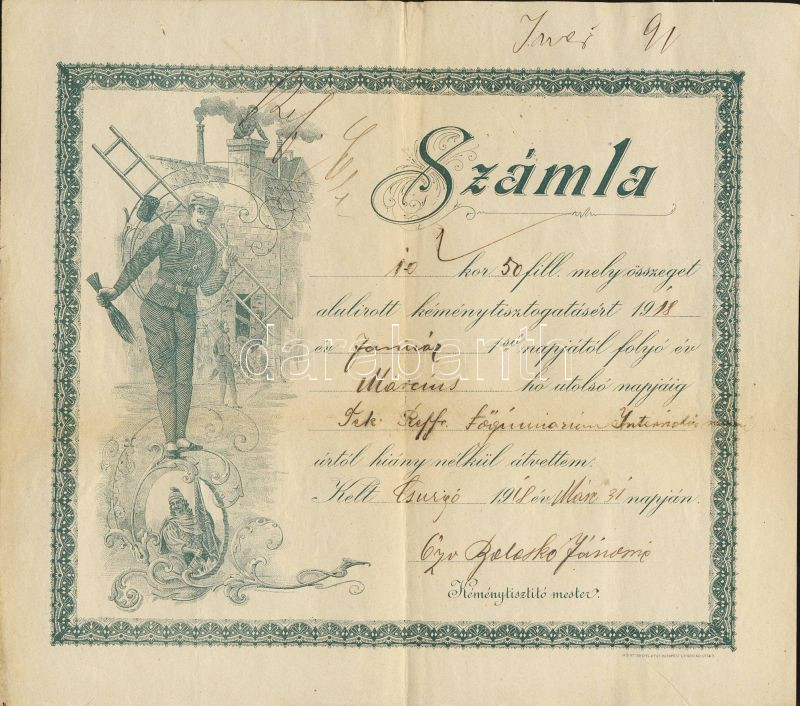 91
Ref.
Számla
10 kor 50 fill. mely összeget
alulírott kéménytisztogatásért 1918
év Január 1ső napjától folyó év
Március hó utolsó napjáig
Ref. Főgimnázium
úrtól hiány nélkül átvettem.
Kelt Csurgó 1918 év Márc 31 napján.
Özv Balaskó Jánosné
Kéménytisztitó mester.
darabanth